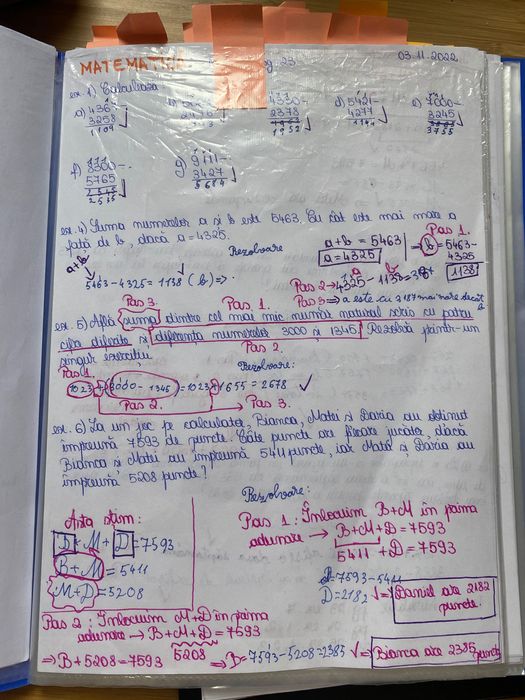 MATEMATI 23 03-11-2022
ex. 1) Calculează
a) 436 - d) 5421 - e) 7000 -
3258 2378 4277 3245
1109 1952 1144 3755
f) 8300 - g) 9111 -
5765 3427
2535 5684
ex. 4) Suma numerelor a și b este 5463. Cu cât este mai mare a
față de b, dacă a = 4325.
Rezolvare
Pas 1.
a+b = 5463 ⇒ b = 5463 -
a = 4325 4325
1138
a+b
5463 - 4325 = 1138 (b) ⇒
Pas 2 → 4325 - 1138 =
Pas 3 ⇒ a este cu 3187 mai mare decât b
Pas 3. Pas 1.
ex. 5) Află suma dintre cel mai mic număr natural scris cu patru
cifre diferite și diferența numerelor 3000 și 1345. Rezolvă printr-un
singur exercițiu.
Pas 2.
Pas 1. Rezolvare:
1023 + (3000 - 1345) = 1023 + 1655 = 2678
Pas 2. Pas 3.
ex. 6) La un joc pe calculator, Bianca, Matei și Daria au obținut
împreună 7593 de puncte. Câte puncte are fiecare jucător, dacă
Bianca și Matei au împreună 5411 puncte, iar Matei și Daria au
împreună 5208 puncte?
Rezolvare:
Asta știm:
+ M + D = 7593
B + M = 5411
M + D = 5208
Pas 1: Înlocuim B+M în prima
adunare → B+M+D = 7593
5411 + D = 7593
D = 7593 - 5411
D = 2182 ⇒ Daniel are 2182
puncte.
Pas 2: Înlocuim M+D în prima
adunare → B+M+D = 7593
5208
⇒ B + 5208 = 7593 ⇒ B = 7593 - 5208 = 2385 ⇒ Bianca are 2385 puncte